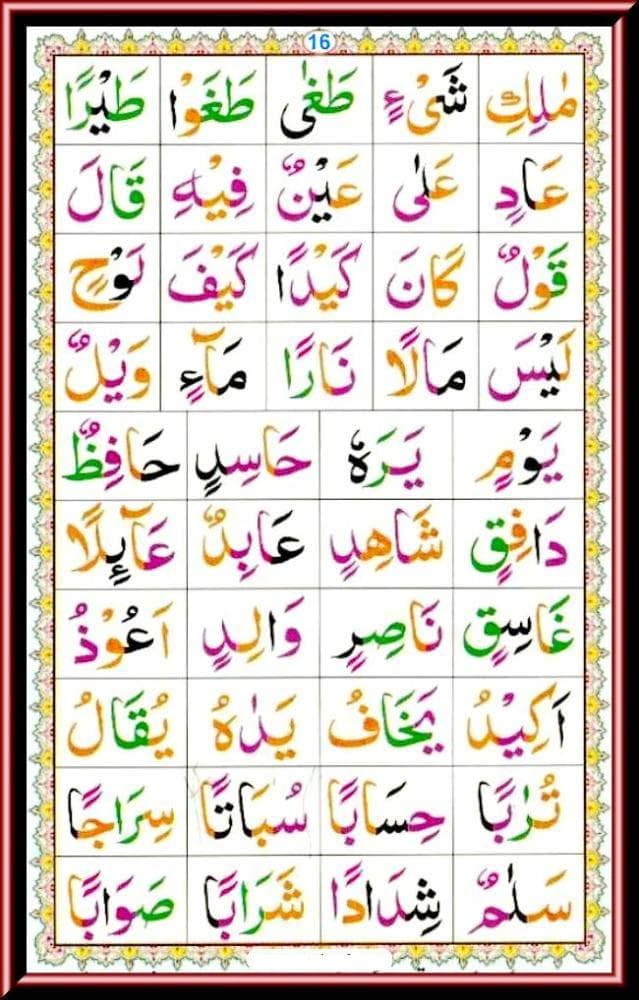 16
مٰلِكِ شَیْءٍ طَغٰی طَغَوْا طَيْرًا
عَادٍ عَلٰی عَيْنٌ فِيْهِ قَالَ
قَوْلٌ كَانَ كَيْدًا كَيْفَ لَوْحٍ
لَيْسَ مَالًا نَارًا مَآءٍ وَيْلٌ
يَوْمٍ يَرَهٗ حَاسِدٍ حَافِظٌ
دَافِقٍ شَاهِدٍ عَابِدٌ عَآىِٕلًا
غَاسِقٍ نَاصِرٍ وَالِدٍ اَعُوْذُ
اَكِيْدُ يَخَافُ يَدٰهُ يُقَالُ
تُرٰبًا حِسَابًا سُبَاتًا سِرَاجًا
سَلٰمٌ شِدَادًا شَرَابًا صَوَابًا